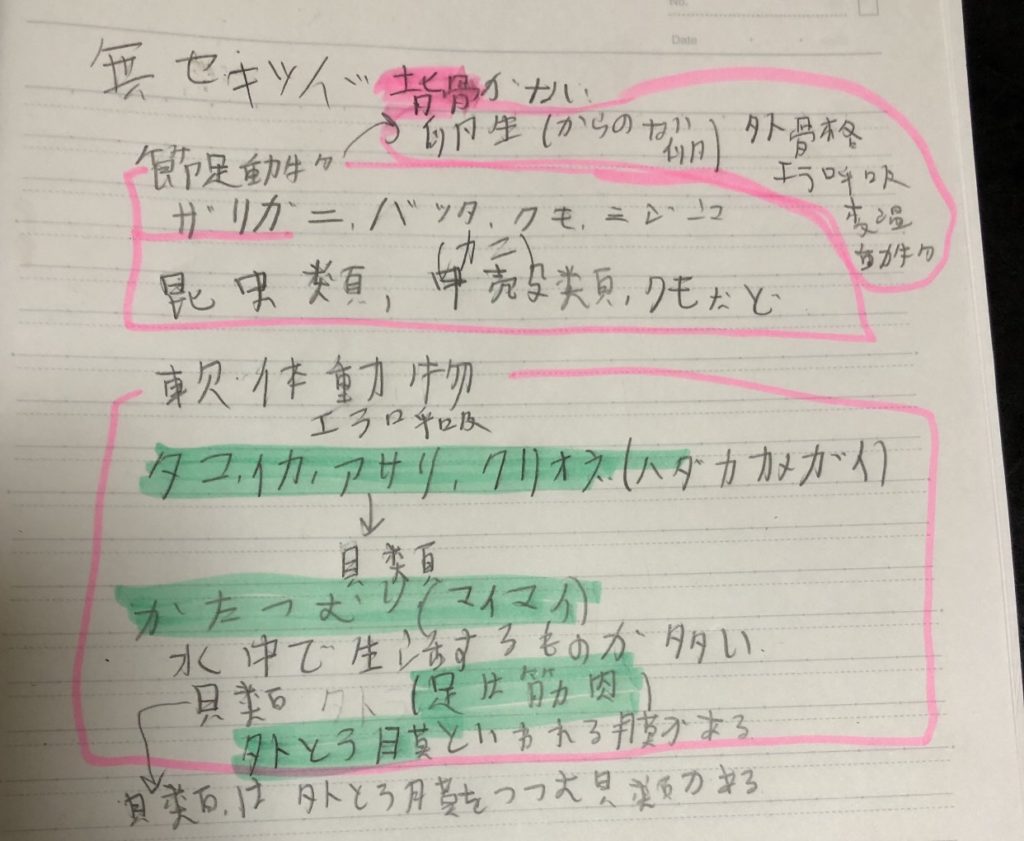 No.
Date
無セキツイ 背骨がない
卵生(からのない卵) 外骨格
エラ呼吸
変温
動物
節足動物
ザリガニ,バッタ,クモ,ミジンコ
(カニ)
昆虫類,甲殻類,クモなど
軟体動物
エラ呼吸
タコ,イカ,アサリ,クリオネ(ハダカカメガイ)
貝類
かたつむり(マイマイ)
水中で生活するものが多い
貝類 (足は筋肉)
外とう膜といわれる膜がある
貝類は外とう膜をつつむ貝類がある